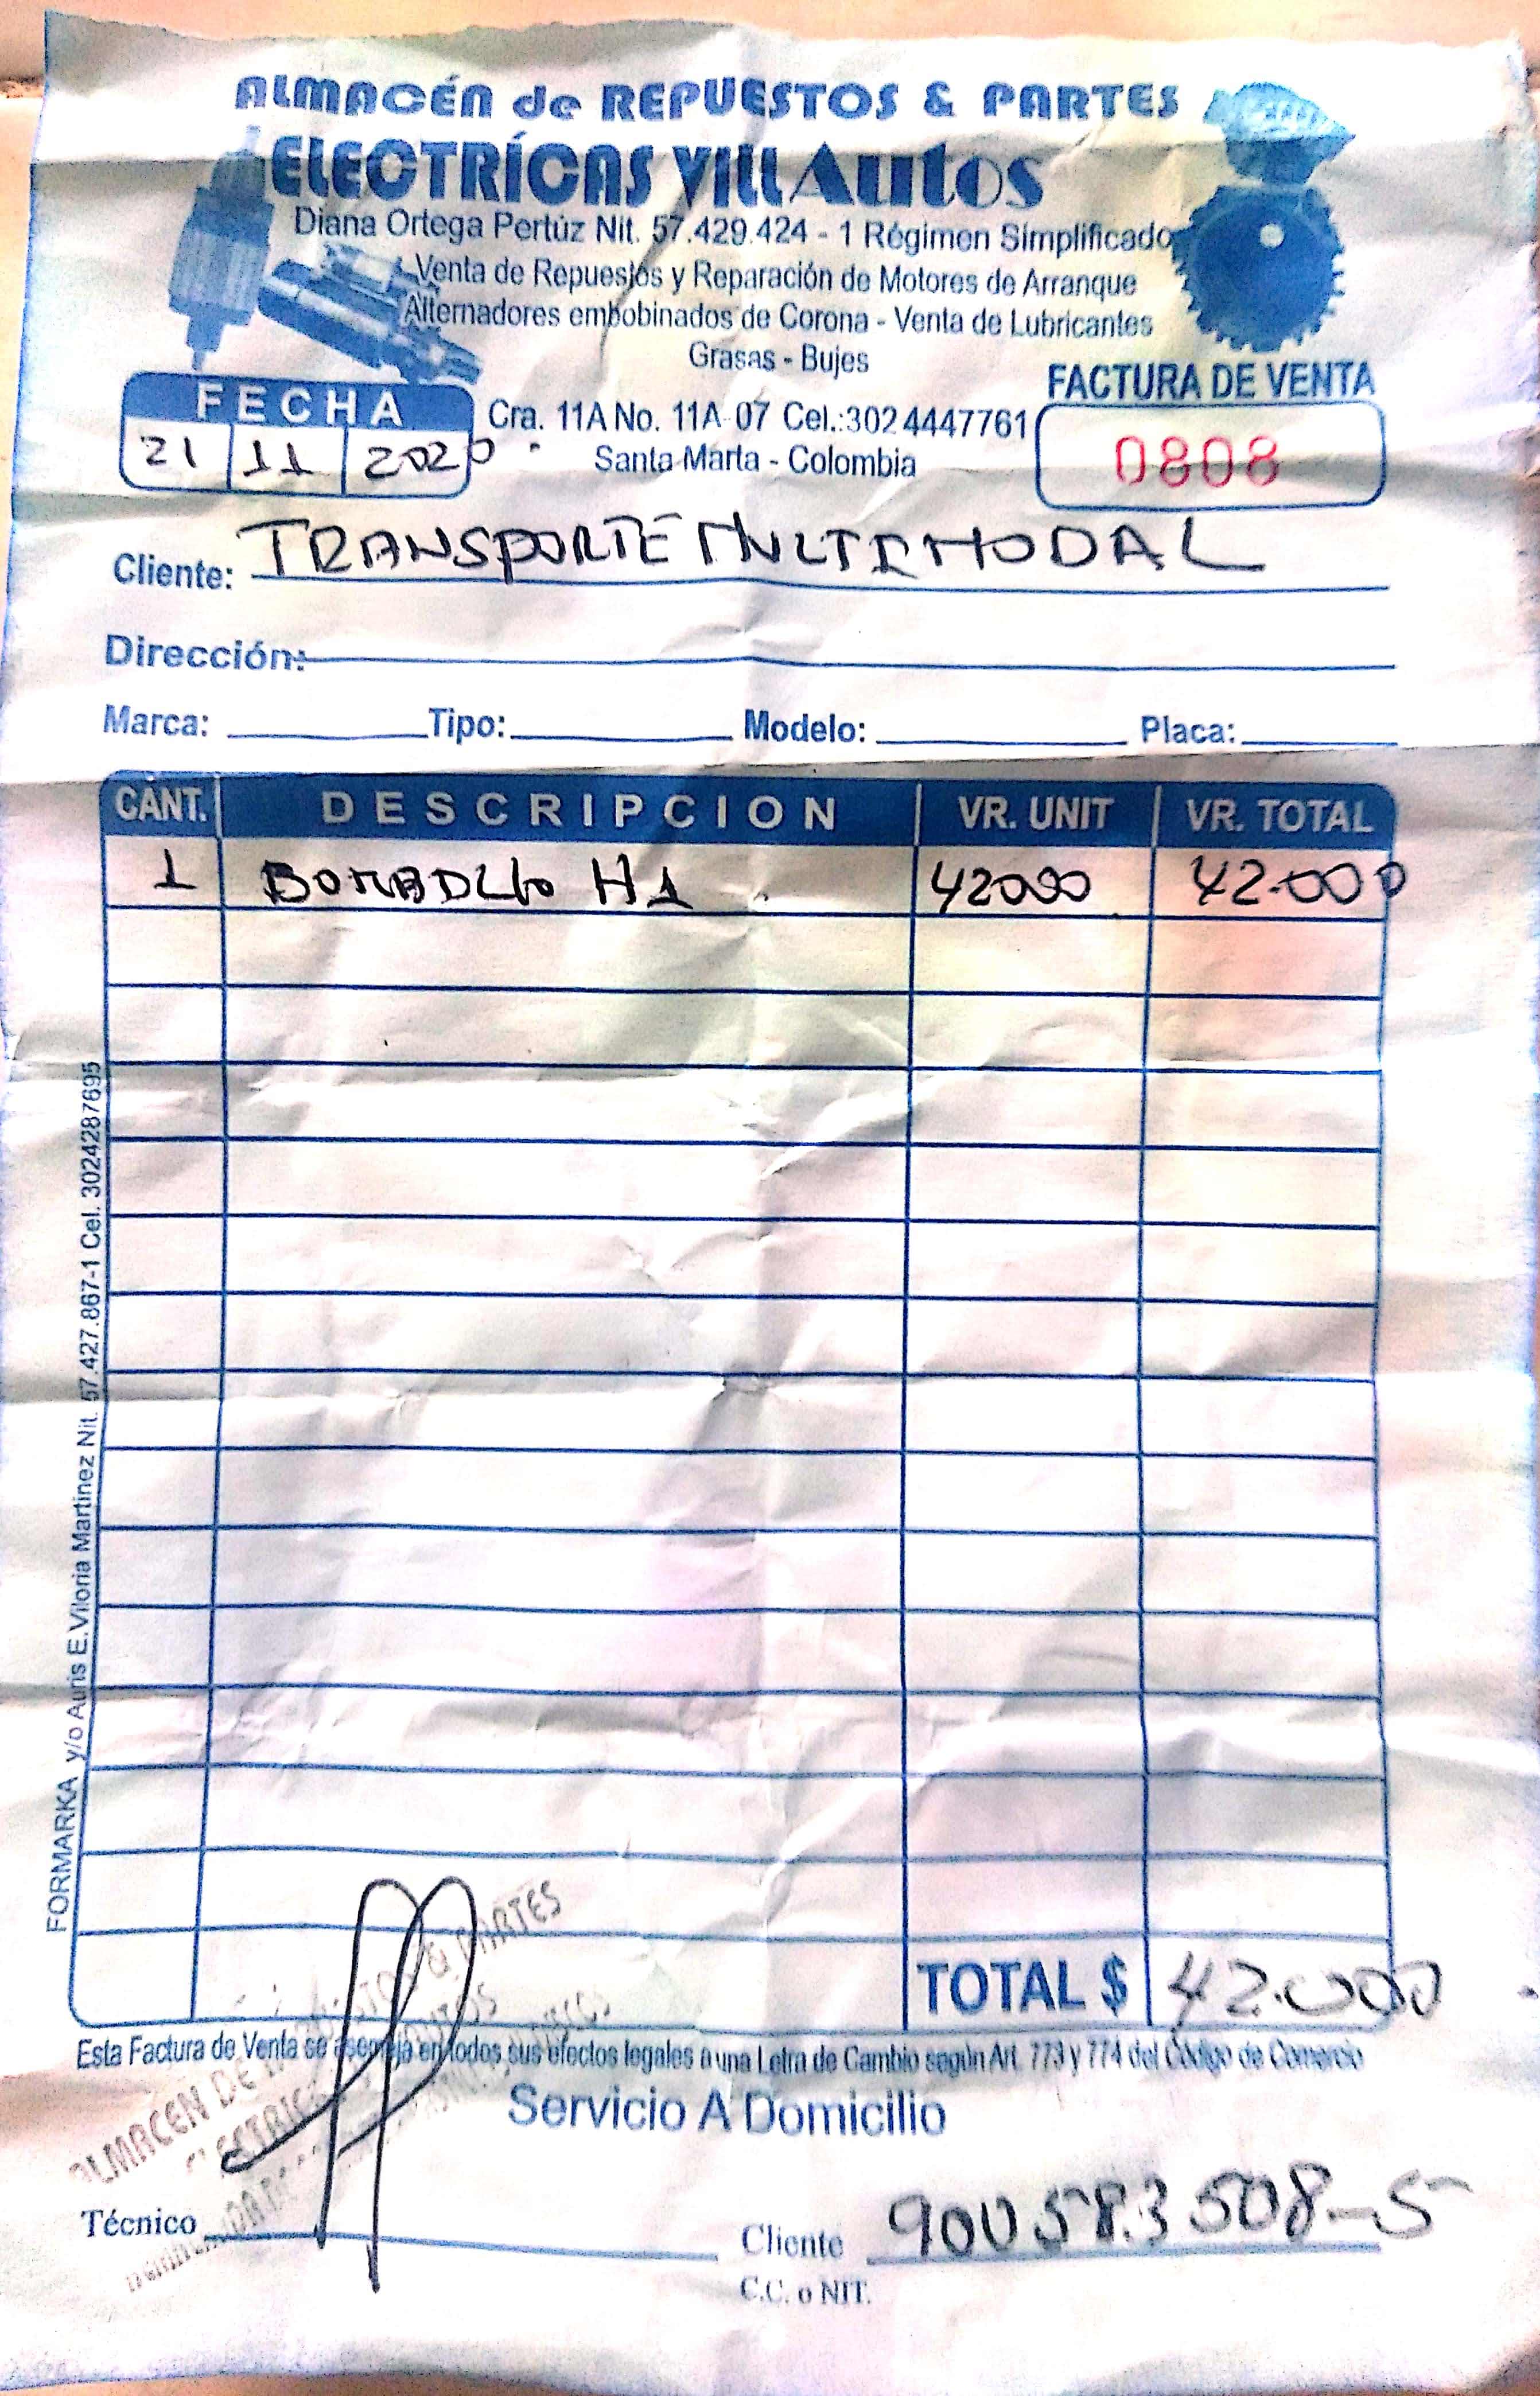 ALMACÉN de REPUESTOS & PARTES
ELECTRÍCAS VILLAutos
Diana Ortega Pertúz Nit. 57.429.424 - 1 Régimen Simplificado
Venta de Repuestos y Reparación de Motores de Arranque
Alternadores embobinados de Corona - Venta de Lubricantes
Grasas - Bujes
FECHA
21 11 2020
Cra. 11A No. 11A-07 Cel.:302 4447761
Santa Marta - Colombia
FACTURA DE VENTA
0808
Cliente: TRANSPORTE MULTIMODAL
Dirección:
Marca: Tipo: Modelo: Placa:
CANT. DESCRIPCION VR. UNIT VR. TOTAL
1 H1 42000 42.000
TOTAL $ 42.000
FORMARKA y/o Auris E.Viloria Martínez Nit. 57.427.867-1 Cel. 3024287695
Esta Factura de Venta se asemeja en todos sus efectos legales a una Letra de Cambio según Art. 773 y 774 del Código de Comercio
Servicio A Domicilio
ALMACEN DE & PARTES
Técnico
Cliente 900583508-5
C.C. o NIT.